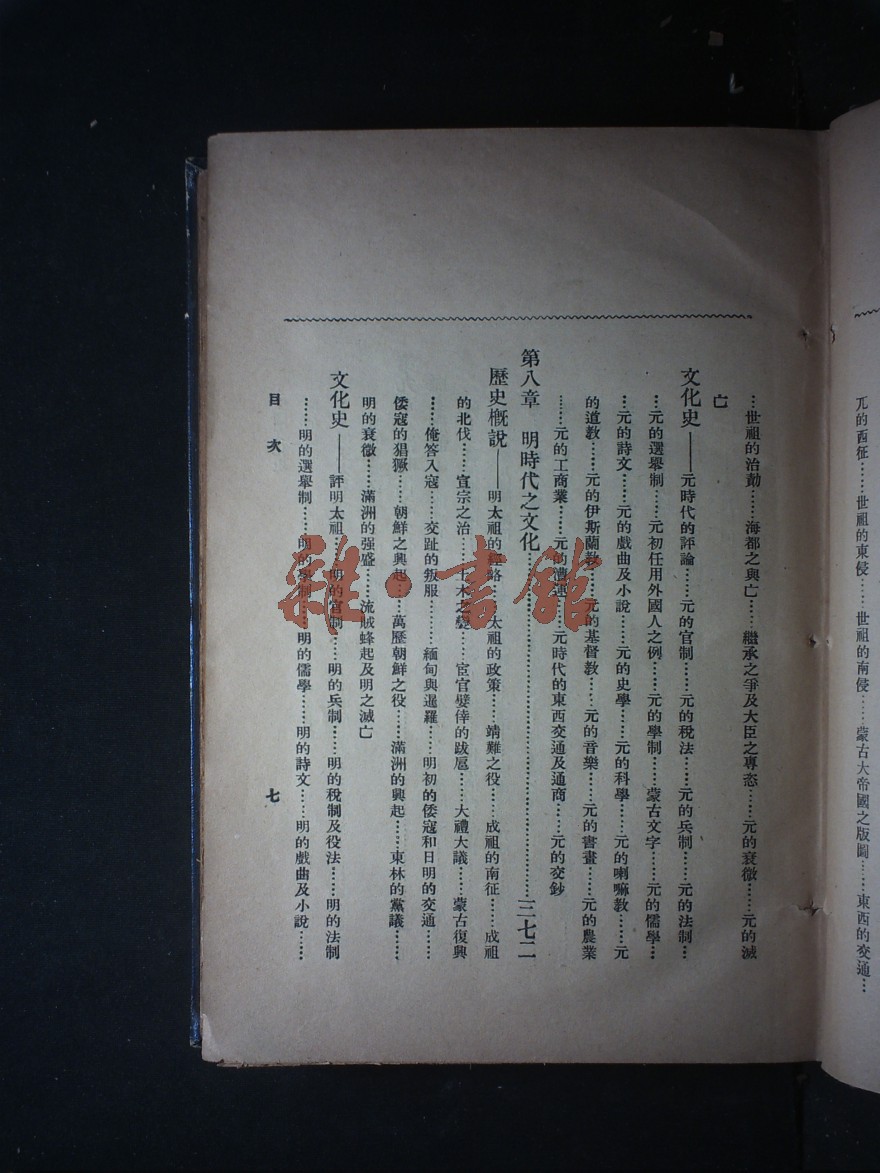 兀的西征……世祖的東侵……世祖的南侵……蒙古大帝國之版圖……東西的交通…
…世祖的治勣……海都之興亡……繼承之爭及大臣之專恣……元的衰微……元的滅
亡
文化史——元時代的評論……元的官制……元的稅法……元的兵制……元的法制…
…元的選舉制……元初任用外國人之例……元的學制……蒙古文字……元的儒學…
…元的詩文……元的戲曲及小說……元的史學……元的科學……元的喇嘛教……元
的道教……元的伊斯蘭教……元的基督教……元的音樂……元的書畫……元的農業
……元的工商業……元的漕運……元時代的東西交通及通商……元的交鈔
第八章 明時代之文化……三七二
歷史概說——明太祖的經略……太祖的政策……靖難之役……成祖的南征……成祖
的北伐……宣宗之治……土木之變……宦官嬖倖的跋扈……大禮大議……蒙古復興
……俺答入寇……交趾的叛服……緬甸與暹羅……明初的倭寇和日明的交通……
倭寇的猖獗……朝鮮之興起……萬歷朝鮮之役……滿洲的興起……東林的黨議……
明的衰微……滿洲的强盛……流賊蜂起及明之滅亡
文化史——評明太祖……明的官制……明的兵制……明的稅制及役法……明的法制
……明的選舉制……明的學制……明的儒學……明的詩文……明的戲曲及小說……
目次
七
雜·書館